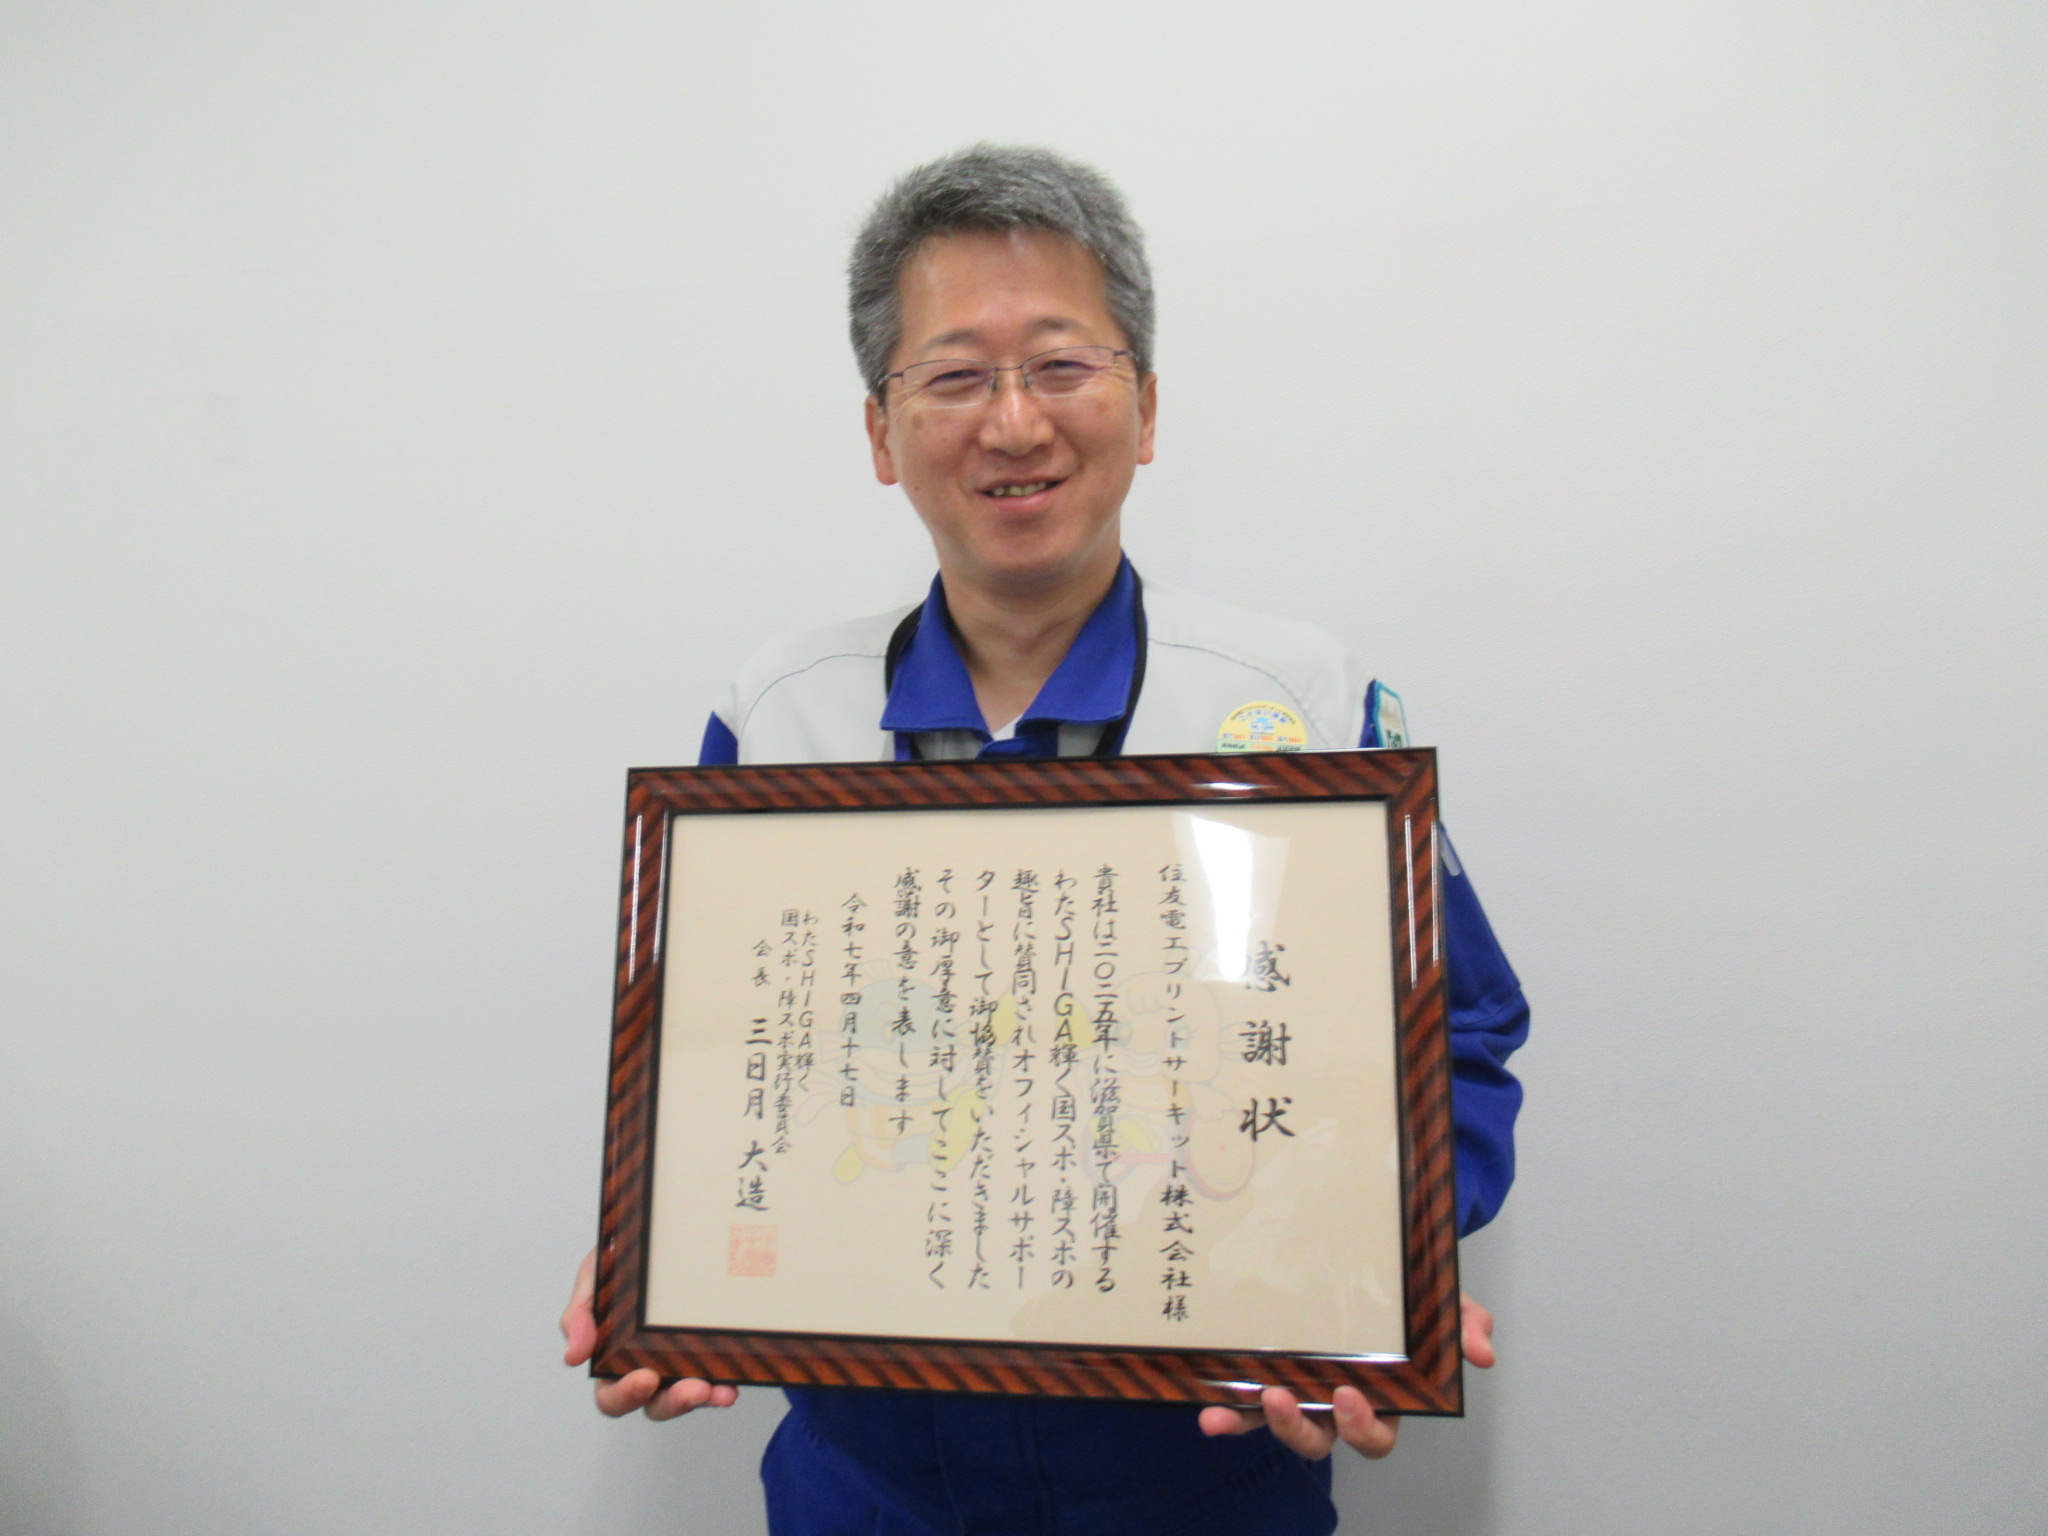 感謝状
住友電工プリントサーキット株式会社様
貴社は二〇二五年に滋賀県で開催する
わたSHIGA輝く国スポ・障スポの
趣旨に賛同されオフィシャルサポー
ターとして御協賛をいただきました
その御厚意に対してここに深く
感謝の意を表します
令和七年四月十七日
わたSHIGA輝く
国スポ・障スポ実行委員会
会長 三日月 大造